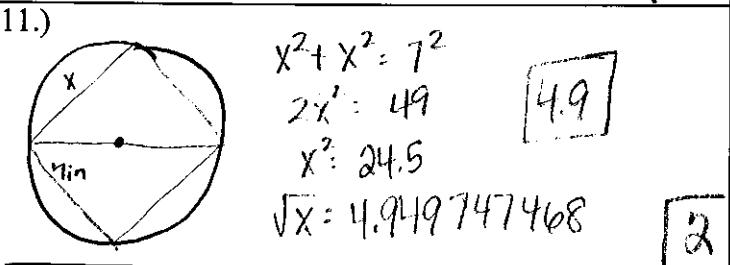 11.)
x
7in
x² + x² = 7²
2x² = 49
x² = 24.5
√x = 4.949747468
4.9
2